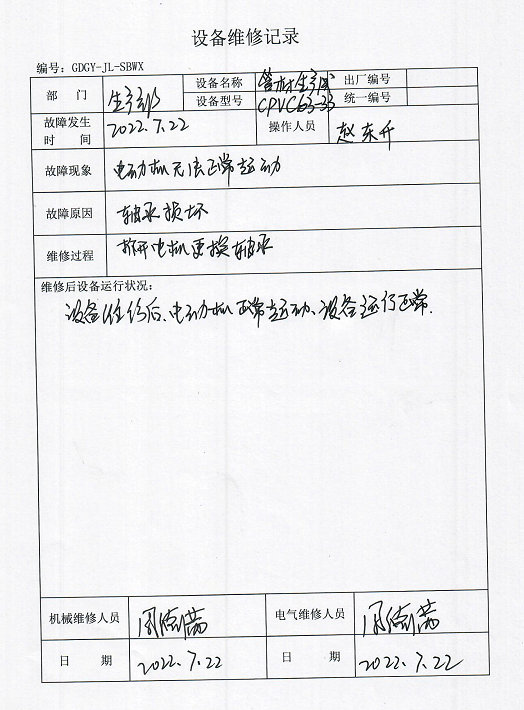 设备维修记录
编号：GDGY-JL-SBWX
部 门 生产部 设备名称 管材生产线 出厂编号
设备型号 CPVC63-33 统一编号
故障发生时 间 2022.7.22 操作人员 赵东升
故障现象 电动机无法正常运动
故障原因 轴承损坏
维修过程 拆开电机更换轴承
维修后设备运行状况：
设备维修后、电动机正常运动、设备运行正常.
机械维修人员 周德满 电气维修人员 周德满
日 期 2022.7.22 日 期 2022.7.22